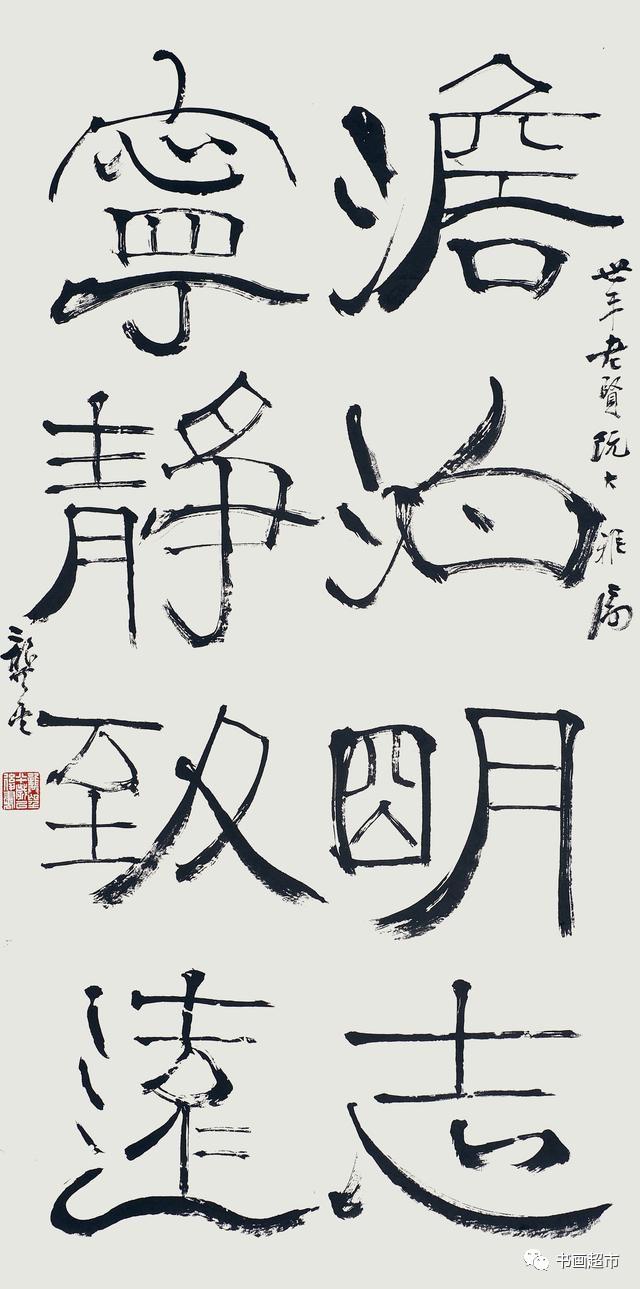 世平老賢阮大雅屬
澹泊明志
寧靜致遠
龔望
书画超市